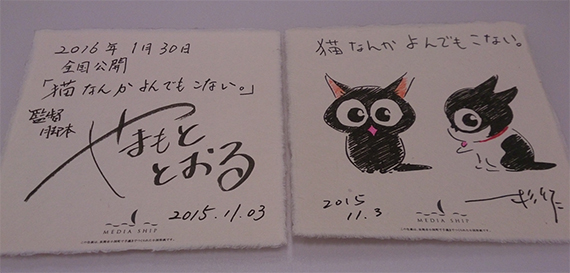 2016年1月30日
全国公開
「猫なんかよんでもこない。」
監督
脚本
やまもと
とおる
2015.11.03
MEDIA SHIP
猫なんかよんでもこない。
2015
11.3
MEDIA SHIP